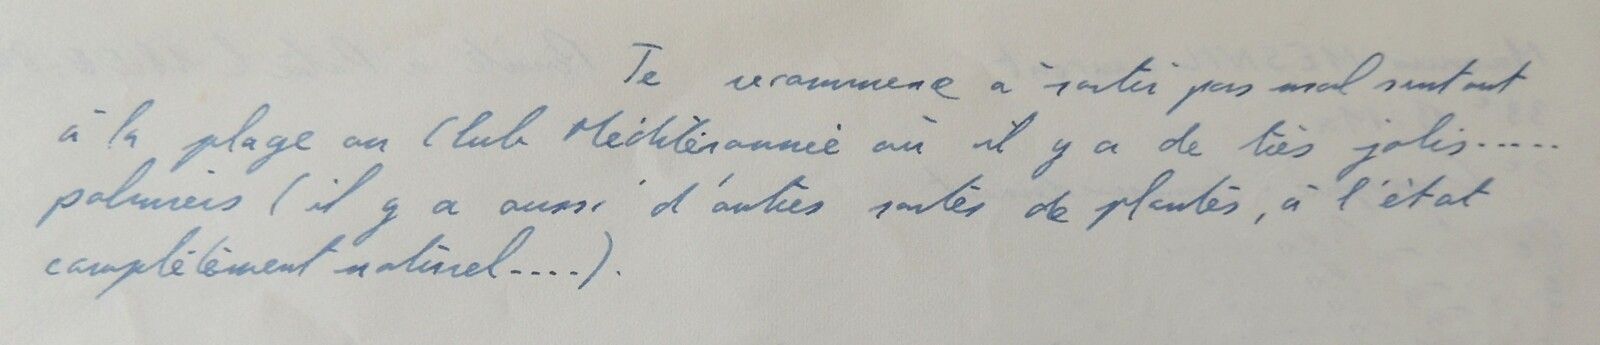 Je recommence à sortir pas mal surtout
à la plage au Club Méditérannée où il y a de très jolis.....
palmiers (il y a aussi d'autres sortes de plantes, à l'état
complètement naturel....).